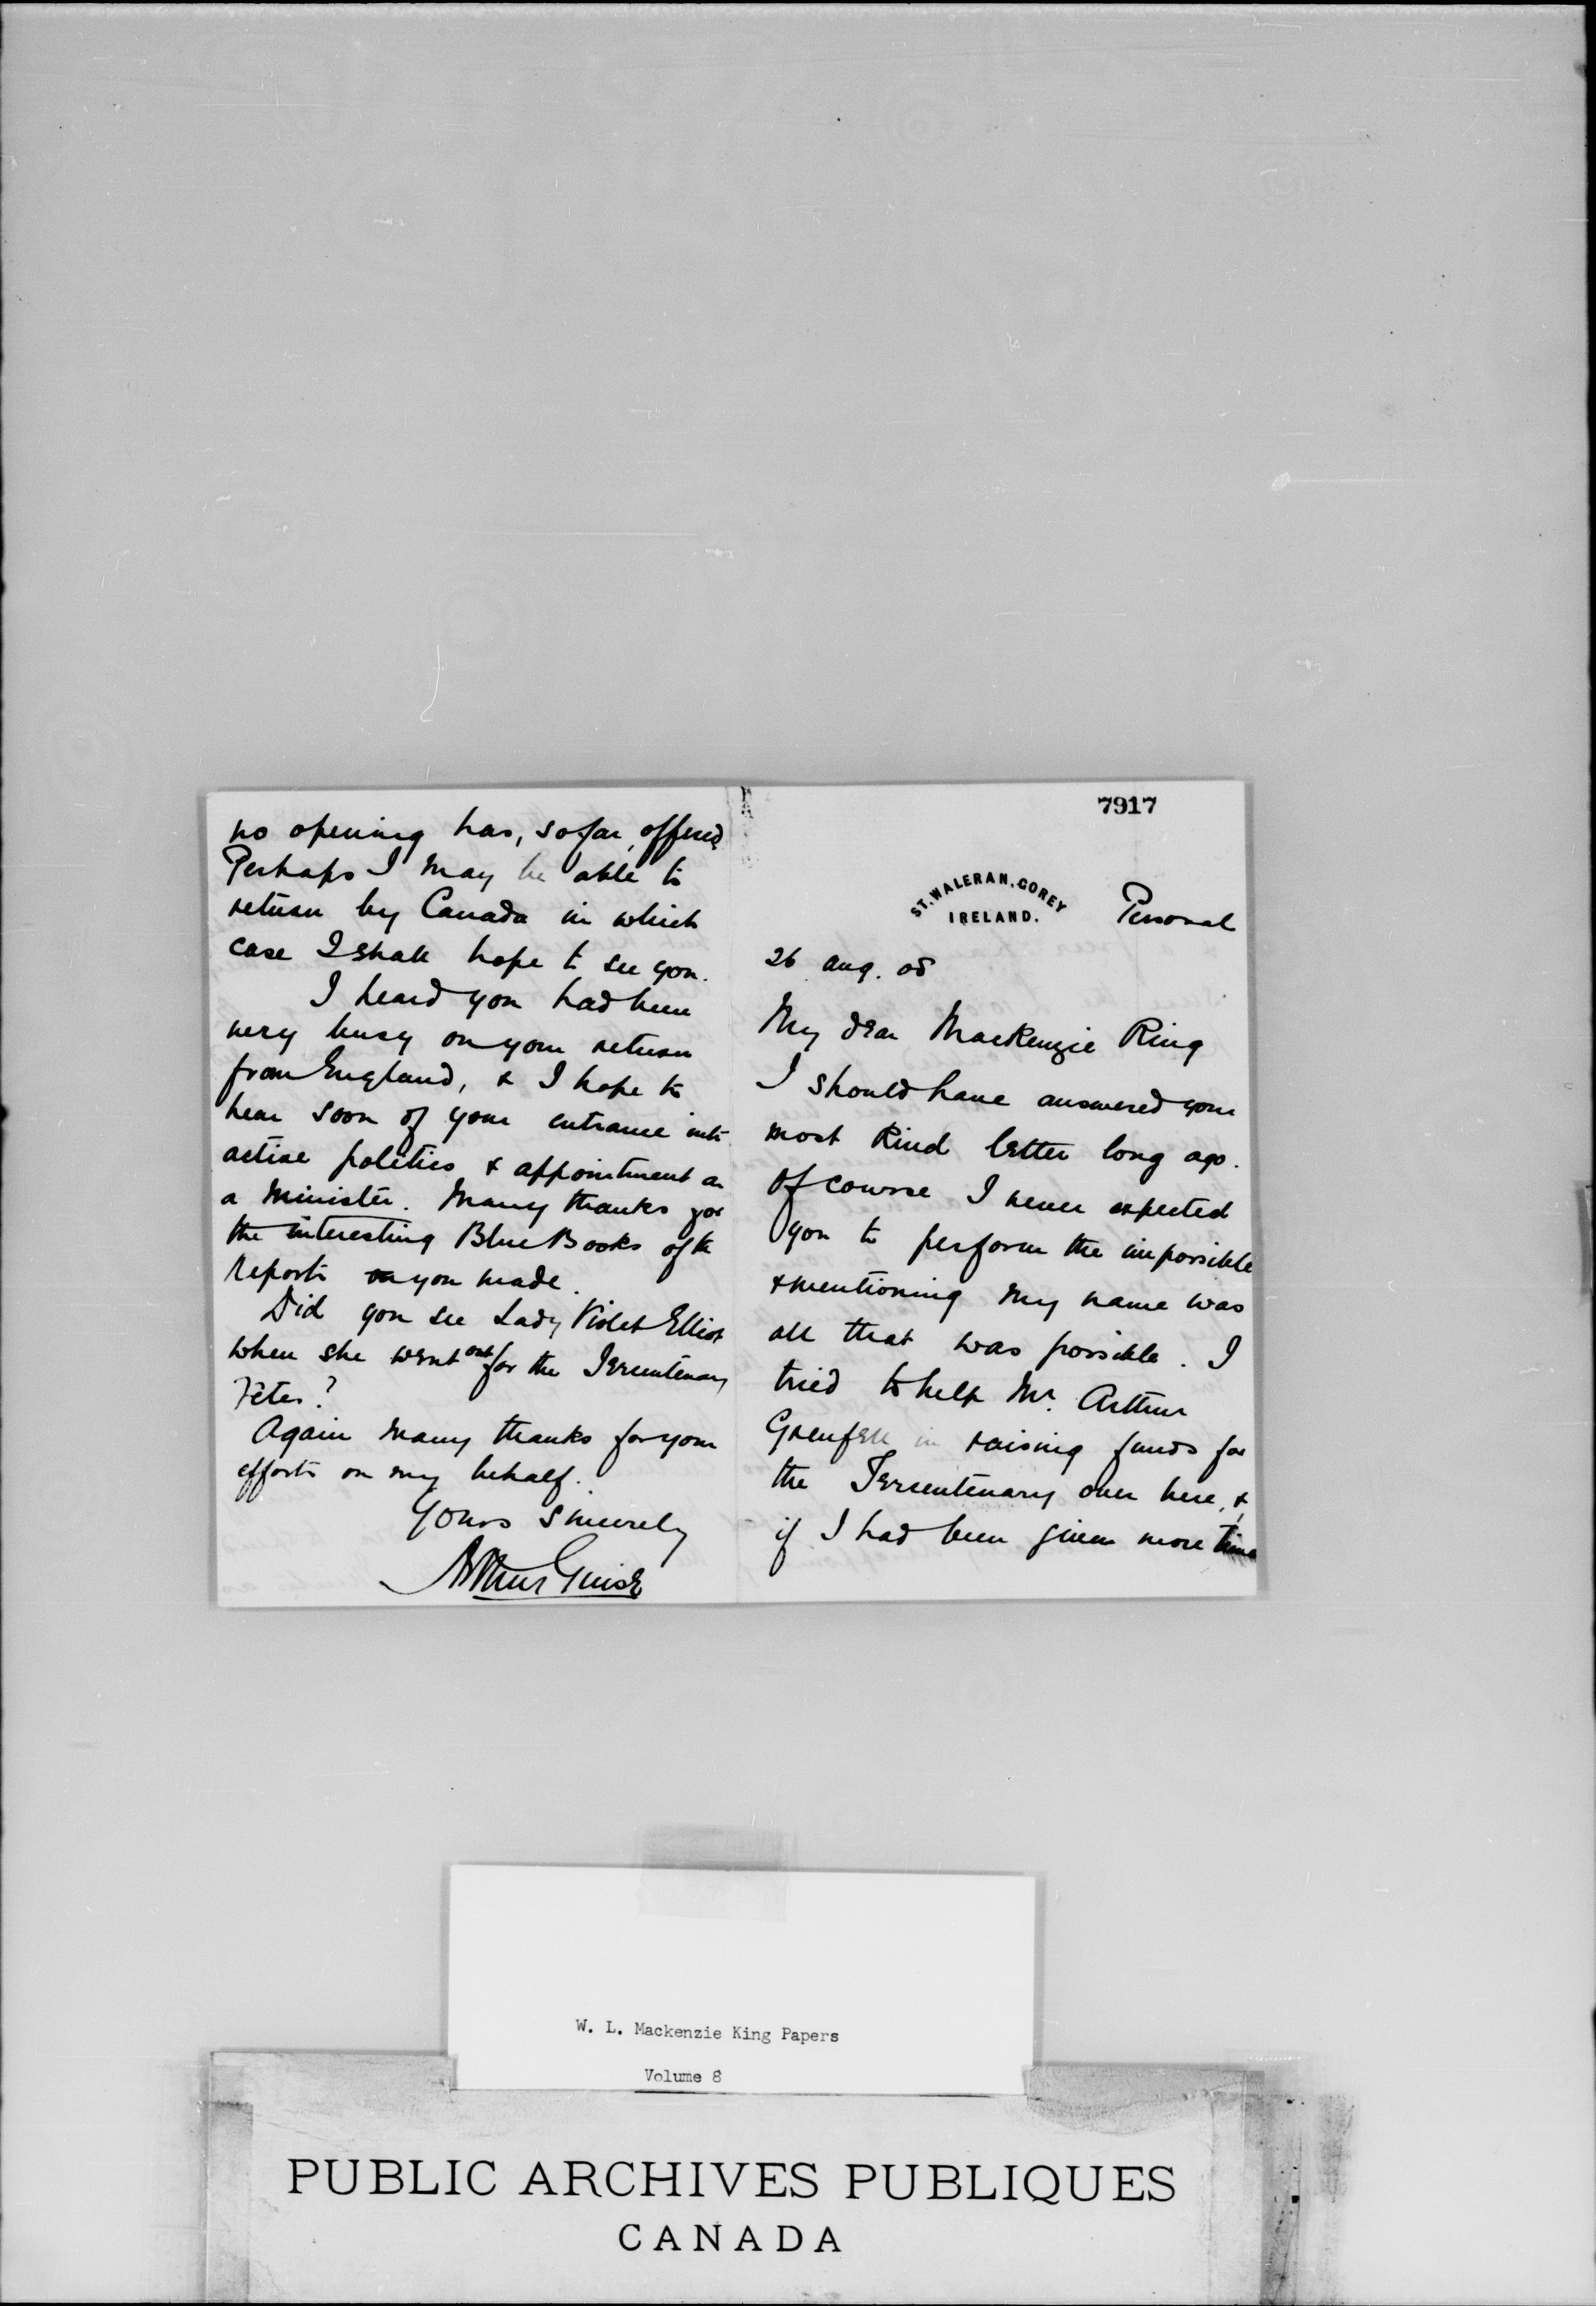 7917
ST. WALERAN, GOREY
IRELAND.
Personal
26 Aug. 08
My dear MacKenzie King
I should have answered your
most kind letter long ago.
Of course I never expected
you to perform the impossible
& mentioning my name was
all that was possible. I
tried to help Mr. Arthur
Grenfell in raising funds for
the Tercentenary over here, &
if I had been given more time
no opening has, so far, offered
Perhaps I may be able to
return by Canada in which
case I shall hope to see you.
I heard you had been
very busy on your return
from England, & I hope to
hear soon of your entrance into
active politics & appointment as
a Minister. Many thanks for
the interesting Blue Books of the
Reports you made.
Did you see Lady Violet Elliot
when she went out for the Tercentenary
Fêtes?
Again many thanks for your
efforts on my behalf.
Yours sincerely
Arthur Guise
W. L. Mackenzie King Papers
Volume 8
PUBLIC ARCHIVES PUBLIQUES
CANADA